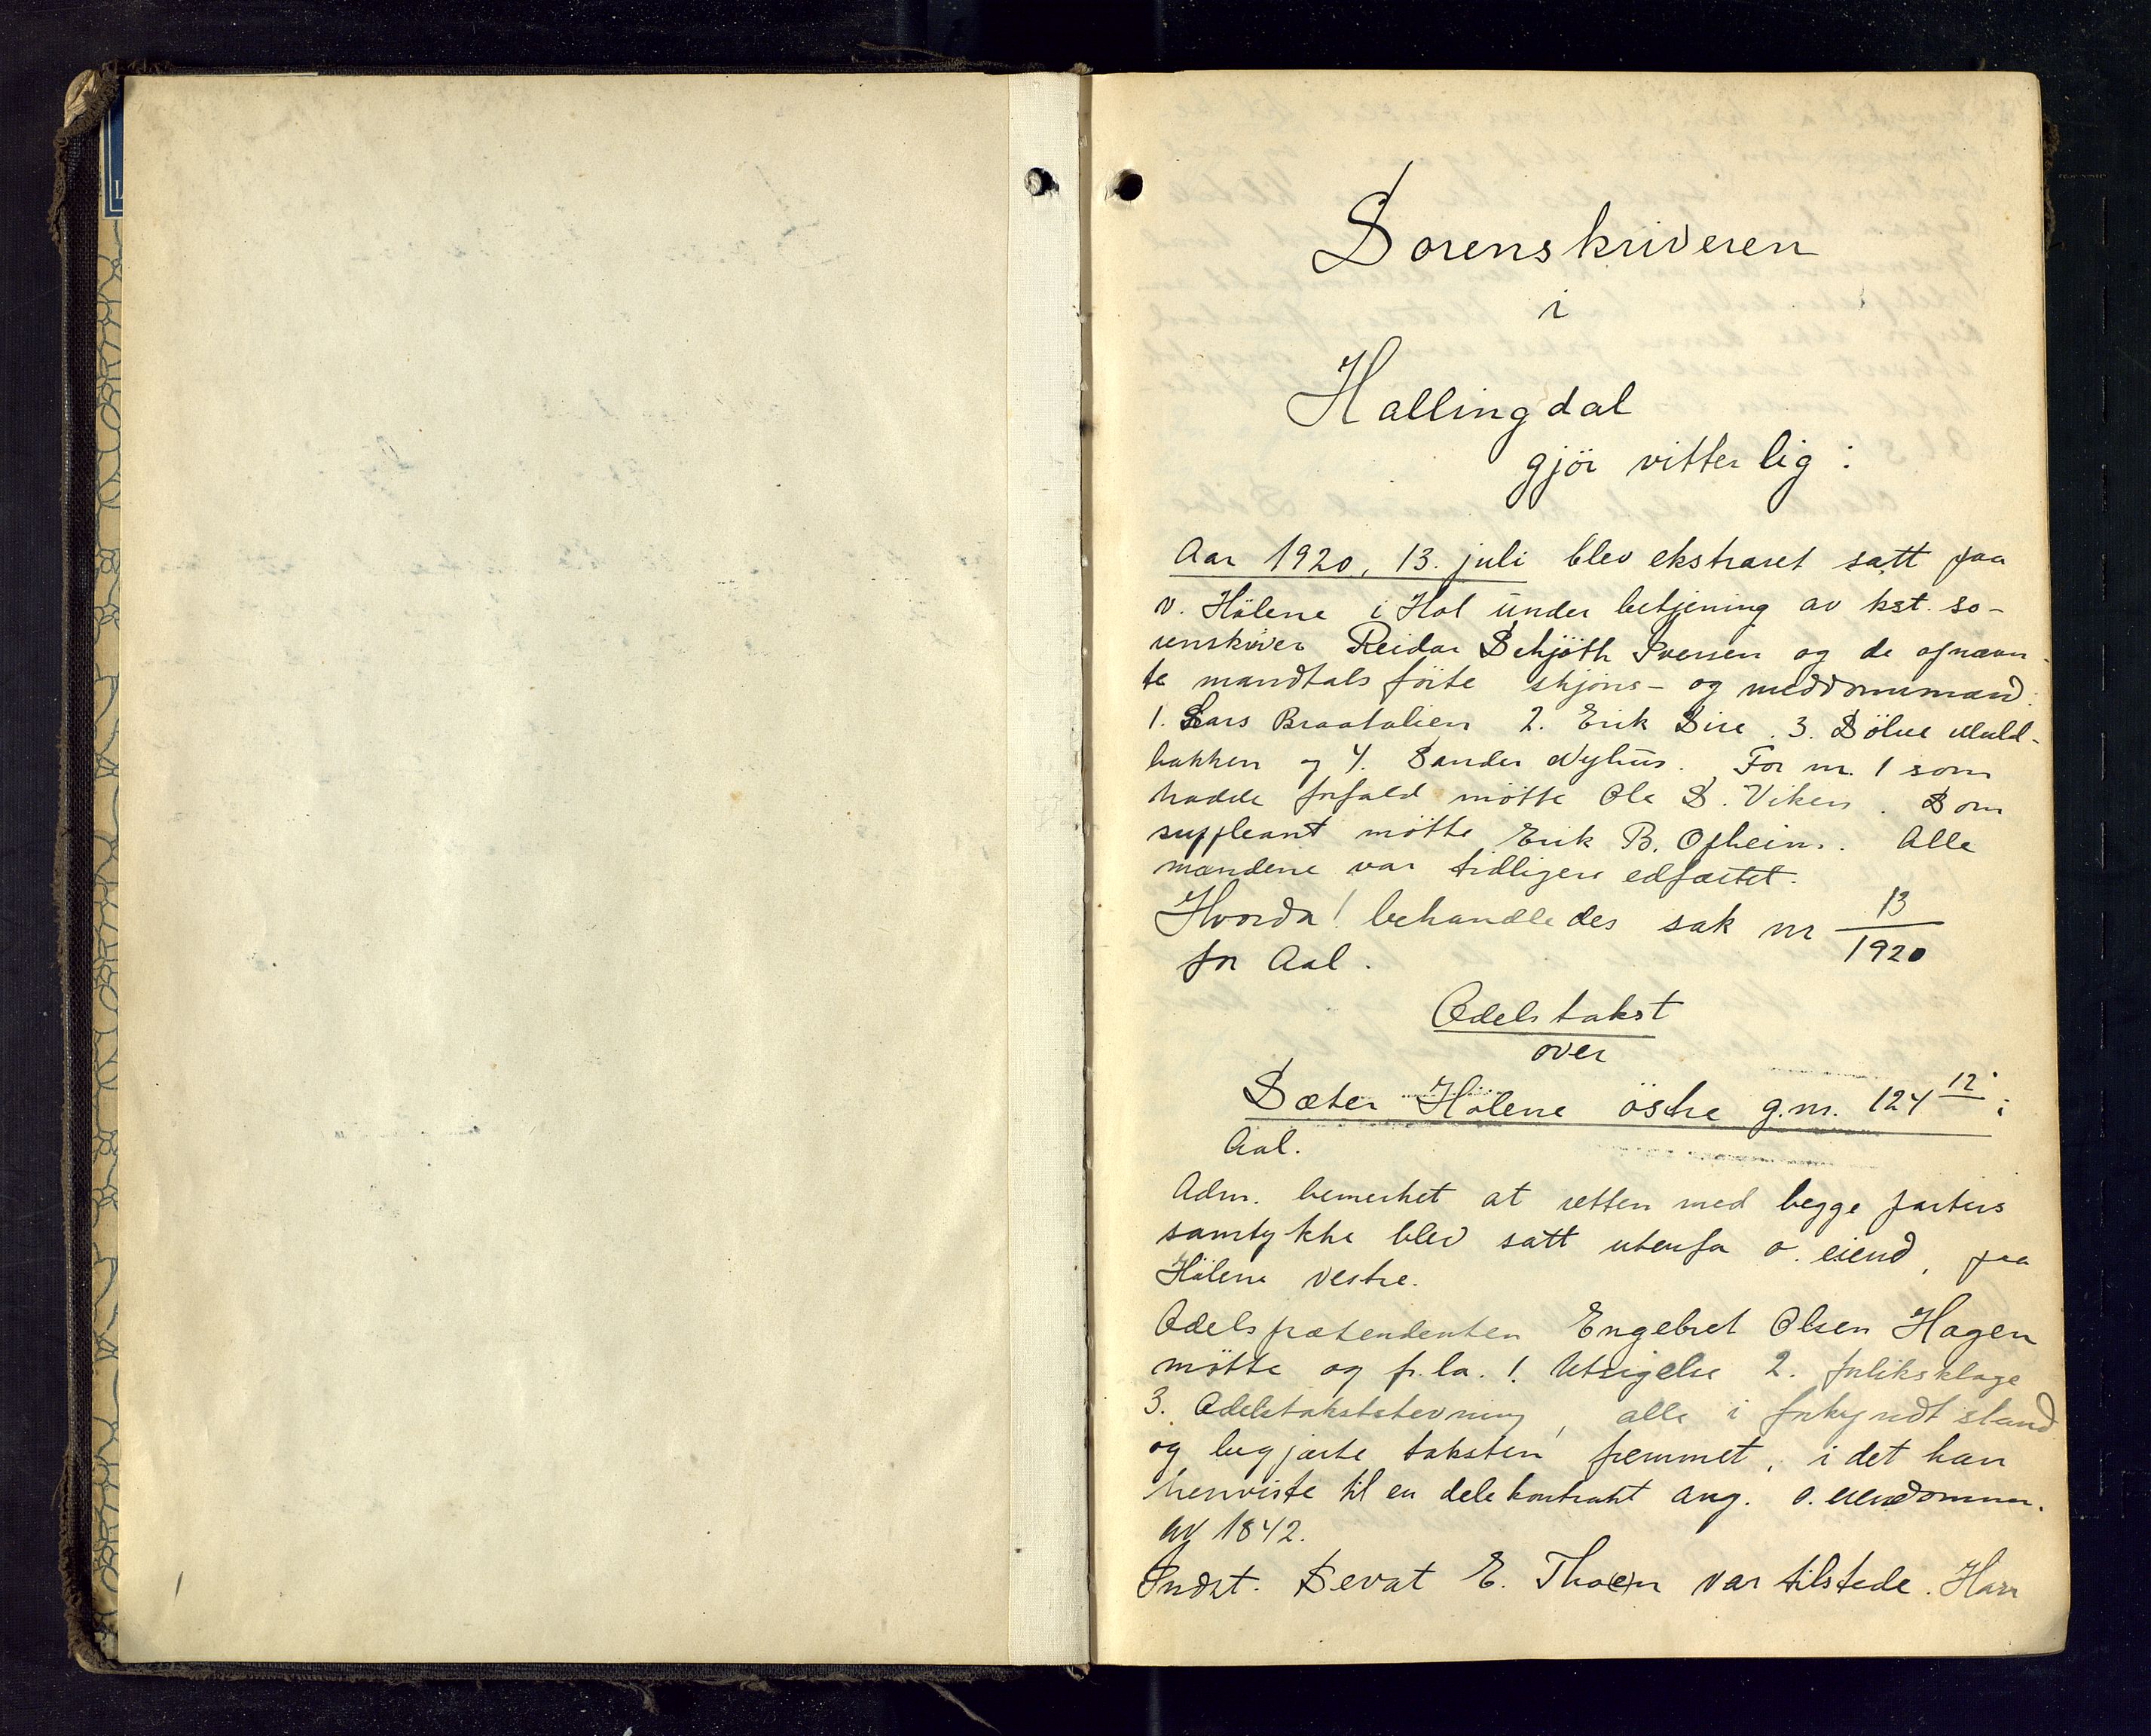 Sorenskriveren
i
Hallingdal
gjör vitterlig:
Aar 1920, 13. juli blev ekstraret satt paa
v. Hölene i Hol under betjening av kst. so-
renskriver Reidar Schjöth Iversen og de opnævn-
te mandtalsförte skjöns- og meddomsmænd:
1. Lars Braatalien 2. Erik Sire. 3. Sölve Muld-
bakken og 4. Sander Nyhus. For nr. 1 som
hadde forfald mötte Ole S. Viken. Som
suppleant mötte Erik B. Opheim. Alle
mændene var tidligere edfæstet.
Hvorda! behandledes sak nr 13/1920
for Aal.
Odelstakst
over
Sæter Hölene östre g.nr. 124 12 i
Aal.
Adm. bemerket at retten med begge parters
samtykke blev satt utenfor o. eiend, paa
Hölene vestre.
Odelsprætendenten Engebret Olsen Hagen
mötte og fr.la. 1. Utsigelse 2. forliksklage
3. Odelstakststevning, alle i forkyndt stand
og begjærte taksten fremmet, i det han
henviste til en delekontrakt ang. o. eiendommen.
av 1842.
Indst. Sevat E. Thoen var tilstede. Han